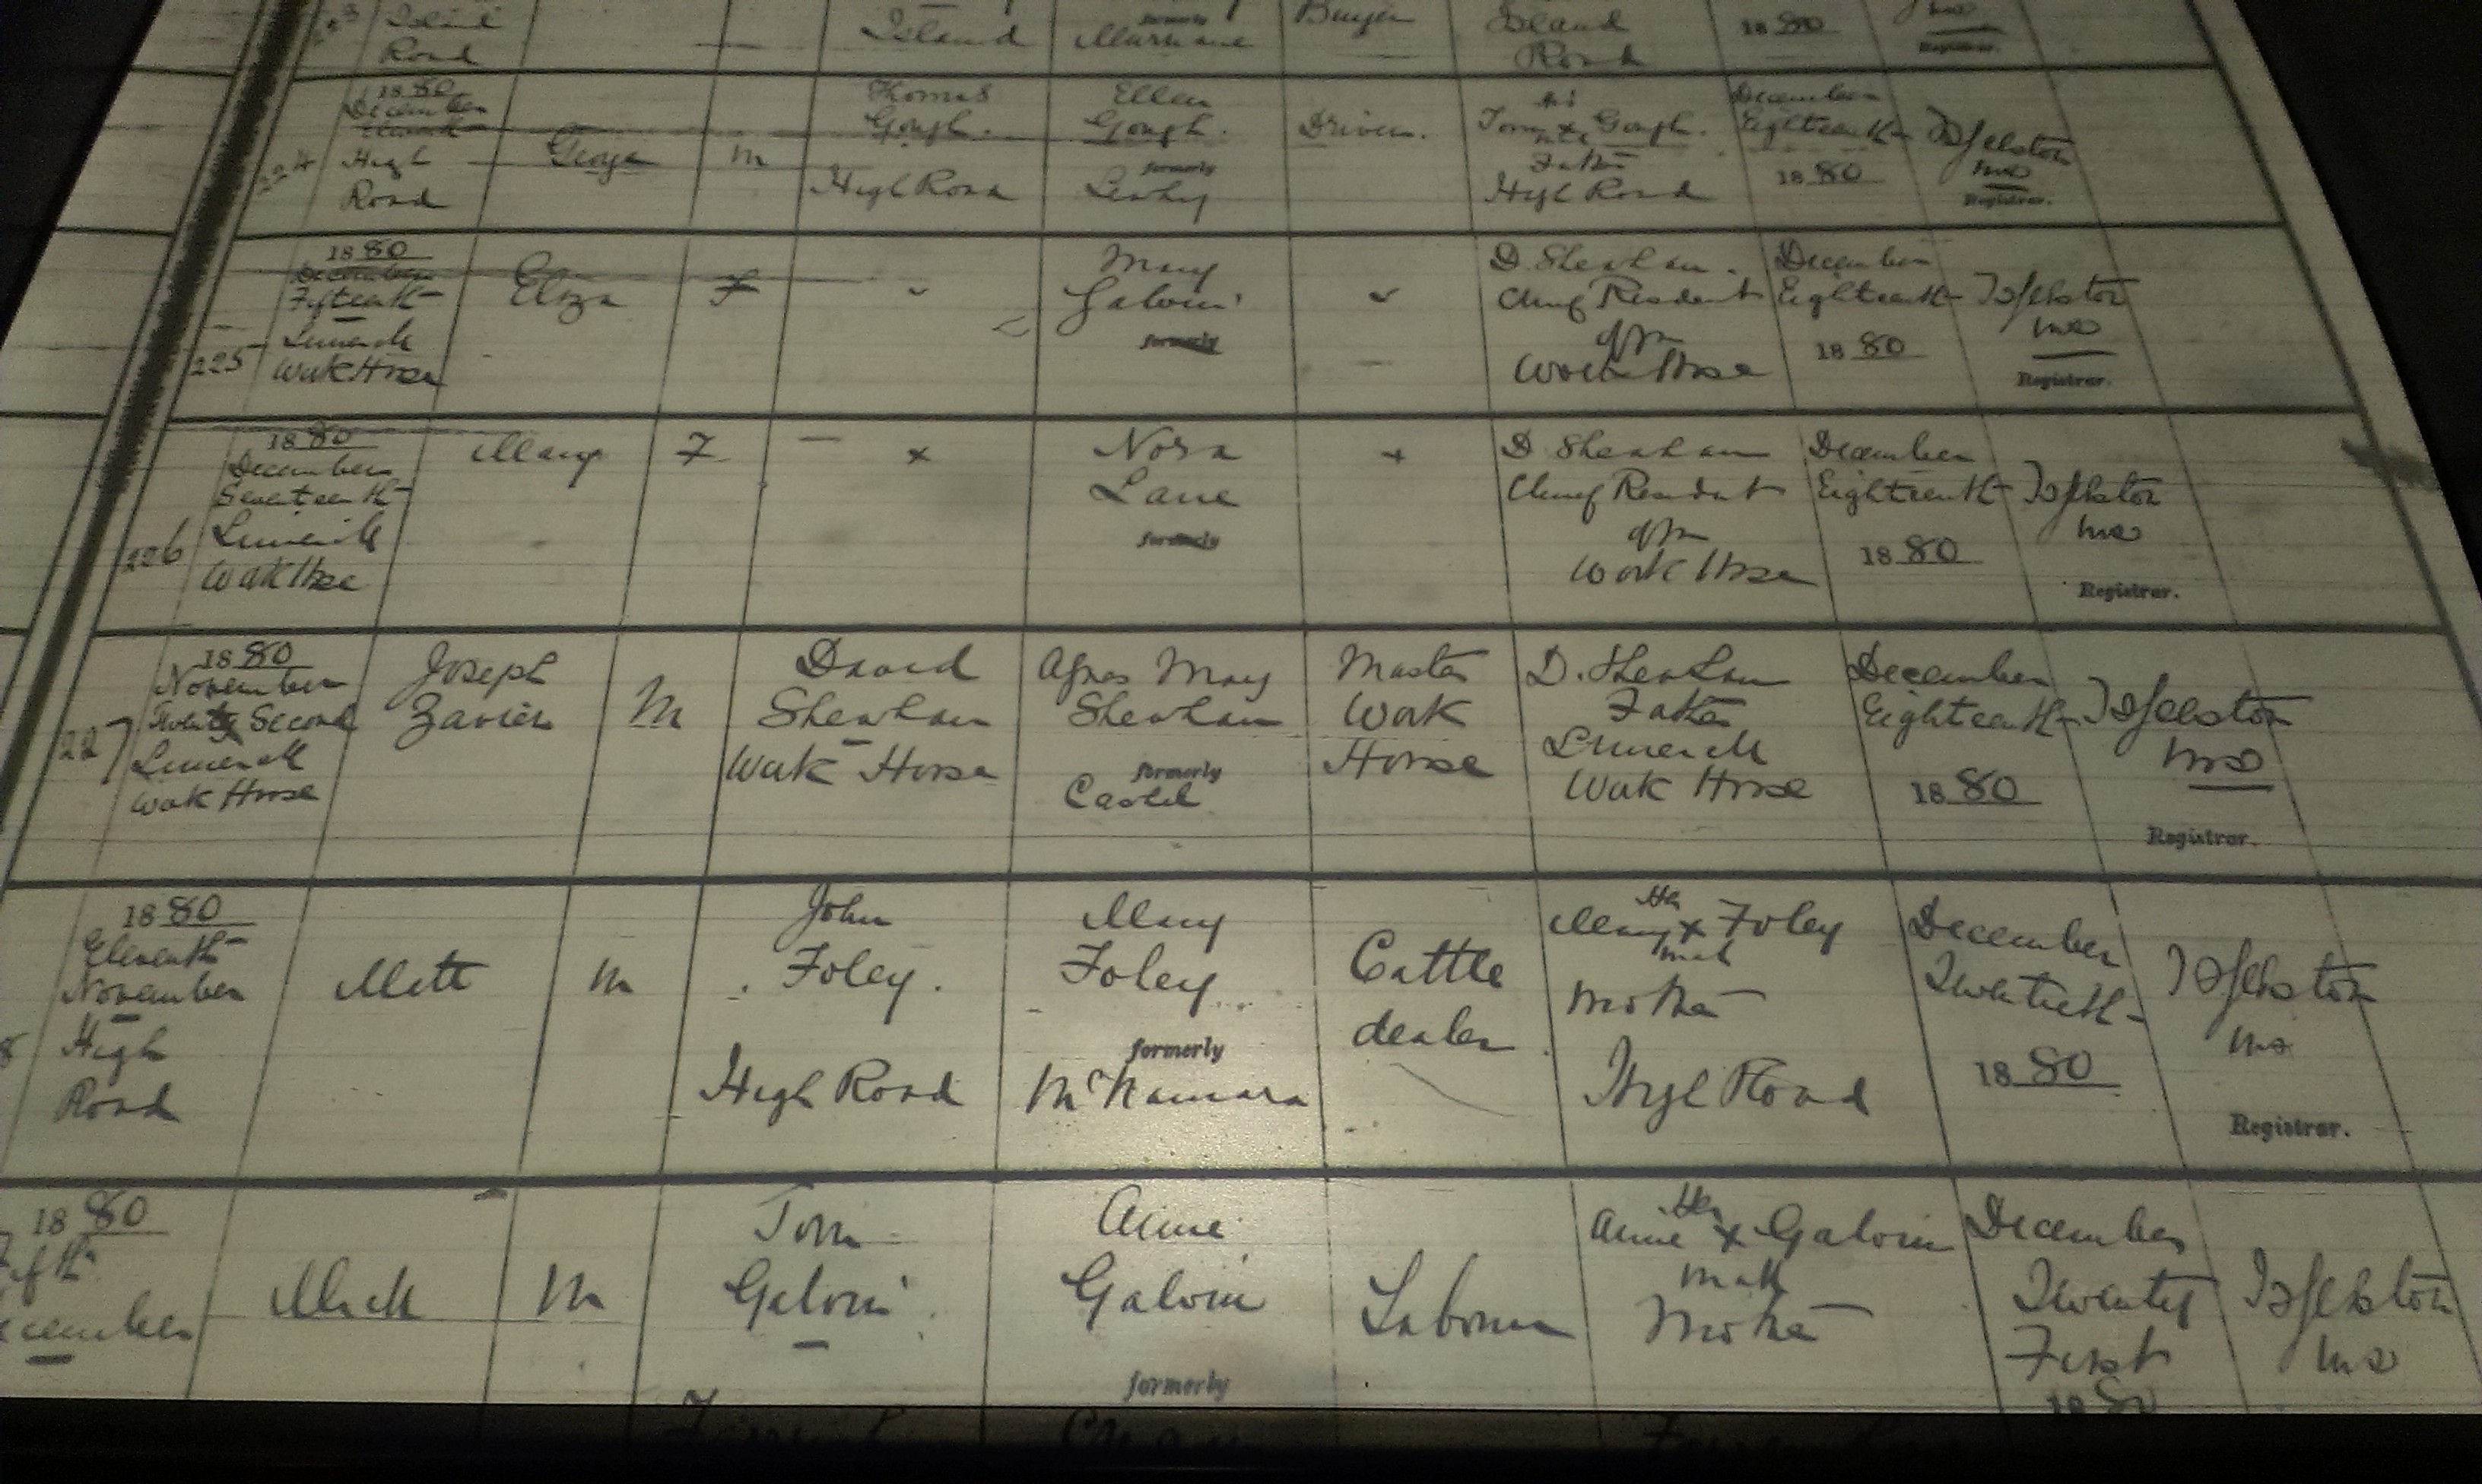 Island
Road
Island
formerly
Murnane
Buyer
Island
Road
1880
Registrar.
224
1880
December
High
Road
George
m
Thomas
Gough.
High Road
Ellen
Gough.
formerly
Leahy
Driver.
his
Tom x Gough.
Father
High Road
December
Eighteenth
1880
Registrar.
225
1880
December
Fifteenth
Limerick
Work House
Eliza
F
Mary
Galvin
formerly
D. Sheahan.
Chief Resident
Work House
December
Eighteenth
1880
Registrar.
226
1880
December
Seventeenth
Limerick
Work House
Mary
F
x
Nora
Lane
formerly
x
D Sheahan
Chief Resident
Work House
December
Eighteenth
1880
Registrar.
227
1880
November
Twenty Second
Limerick
Work House
Joseph
Zavier
M
David
Sheahan
Work House
Agnes Mary
Sheahan
formerly
Master
Work
House
D. Sheahan
Father
Limerick
Work House
December
Eighteenth
1880
Registrar.
8
1880
Eleventh
November
High
Road
Matt
M
John
Foley.
High Road
Mary
Foley
formerly
McNamara
Cattle
dealer
Her
Mary x Foley
mark
Mother
High Road
December
Twentieth
1880
Registrar.
1880
Mick
M
Tom
Galvin
Anne
Galvin
formerly
Labourer
Her
Anne x Galvin
mark
Mother
December
Twenty
First
1880